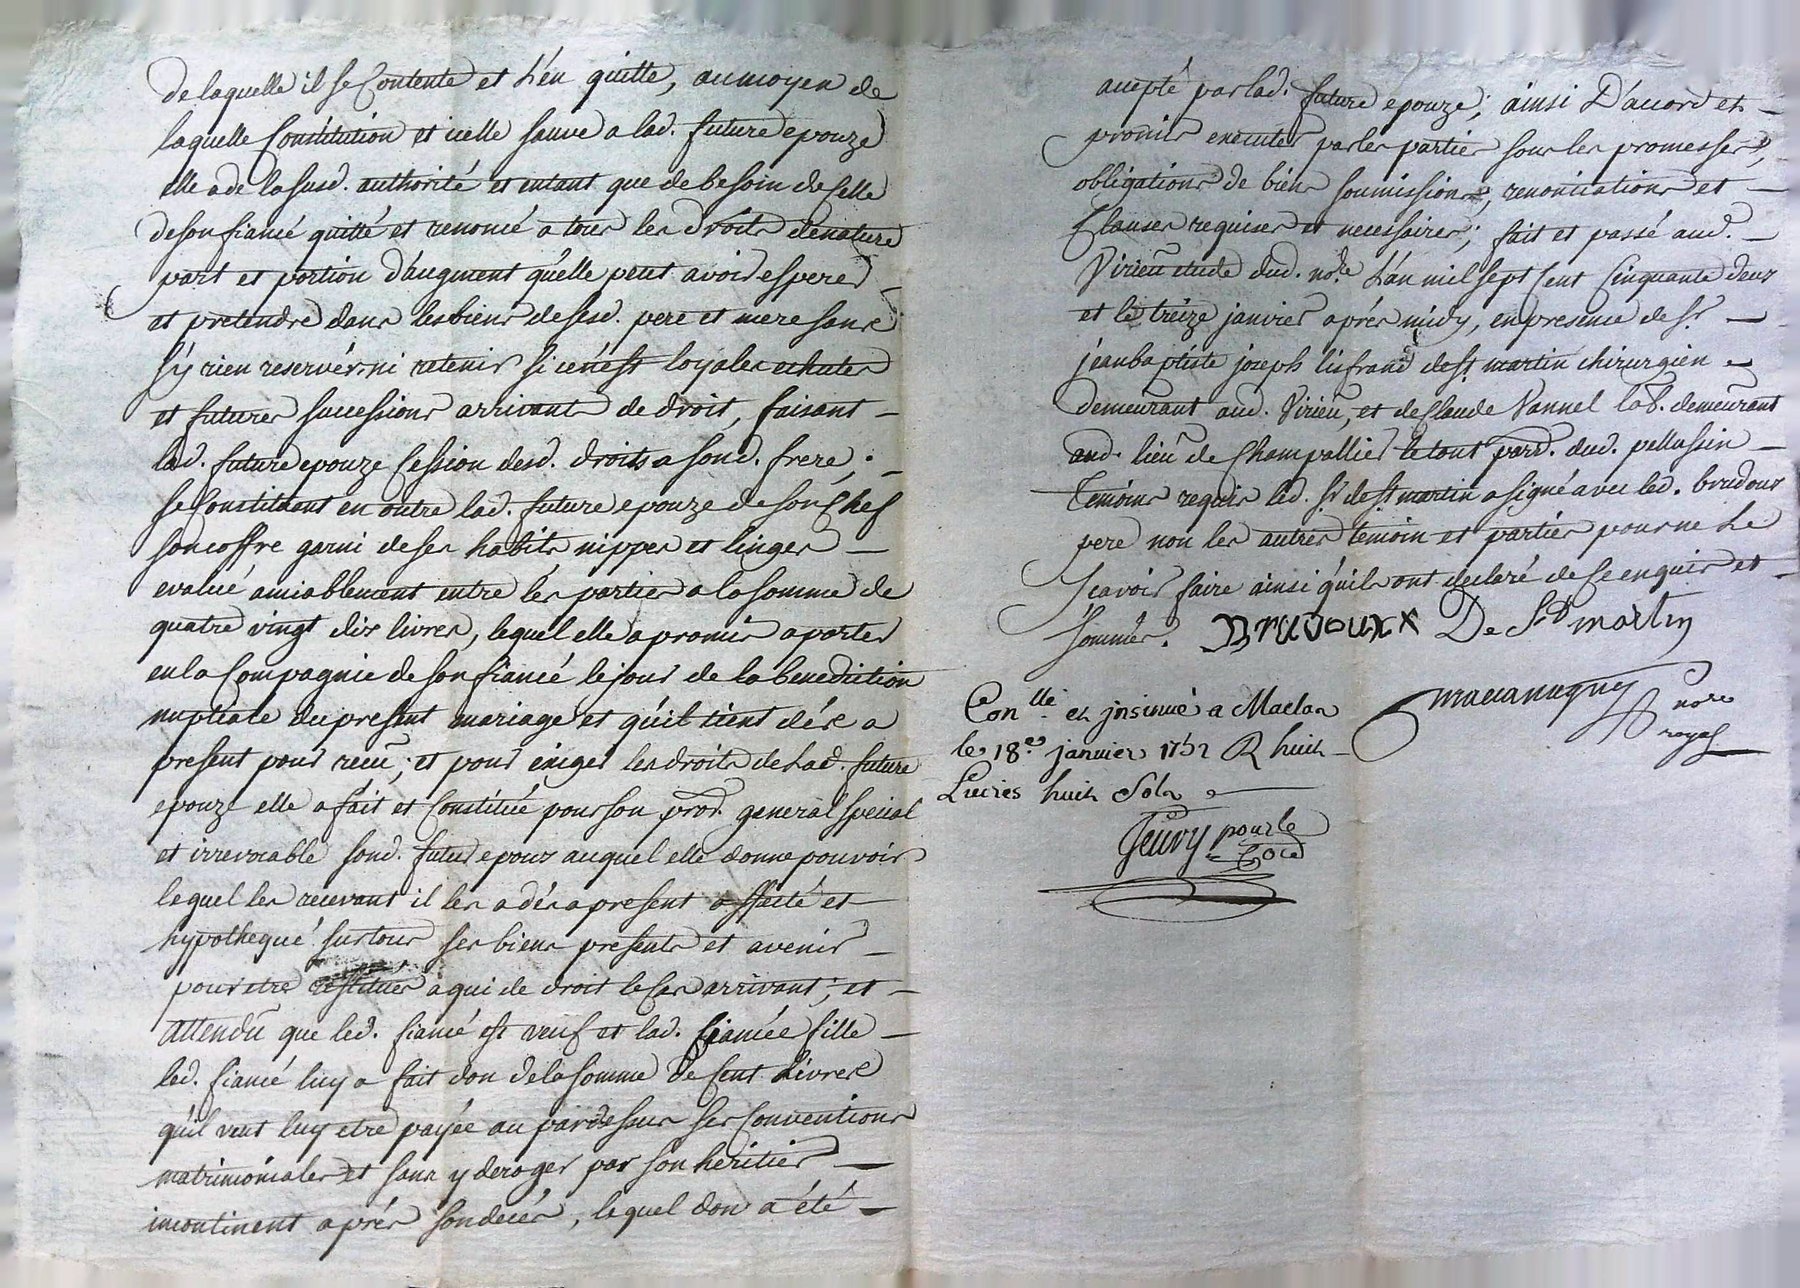 de laquelle il se Contente et l'en quitte, au moyen de
laquelle Constitution et icelle sauve a lad. future epouze
elle a de la susd. authorité et entant que de besoin de Celle
de son fiancé quitté et renoncé a tous les droits de nature
part et portion d'augment qu'elle peut avoir esperer
et pretendre dans les biens de sesd. pere et mere sans
s'y rien reserver ni retenir si ce n'est loyales echutes
et futures successions arrivants de droit, faisant
lad. future epouze Cession desd. droits a sond. frere;
se Constituent en outre lad. future epouze de son Chef
son coffre garni de ses habits nippes et linges
evalué amiablement entre les parties a la somme de
quatre vingt dix livres, lequel elle a promis aporter
en la Compagnie de son fiancé le jour de la benediction
nuptiale du present mariage et qu'il tient dés a
present pour reçu; et pour exiger les droits de lad. future
epouze elle a fait et Constitué pour son prod. general special
et irrevocable sond. futur epoux auquel elle donne pouvoir
lequel les recevant il les a dés a present affecté et
hypothequé sur tous ses biens presents et avenir
pour etre restitués a qui de droit le Cas arrivant; et
attendu que led. fiancé est veuf et lad. fiancée fille
led. fiancé luy a fait don de la somme de Cent livres
qu'il veut luy etre payée au pardessus ses Conventions
matrimoniales et sans y deroger par son heritier
incontinent aprés son decés, lequel don a été
accepté par lad. future epouze; ainsi D'accord et
promis executer par les parties sous les promesses,
obligations de biens soumissions, renonciations et
Clauses requises et necessaires; fait et passé aud.
Virieu etude dud. nore. L'an mil sept Cent Cinquante deux
et le treize janvier aprés midy, en presence de sr
jean baptiste joseph lisfranc de st martin chirurgien
demeurant aud. Virieu, et de Claude Vannel lab. demeurant
aud. lieu de Champallier le tout parr. dud. pellussin
Temoins requis led. sr de st martin a signé avec led. brudoux
pere non les autres temoin et parties pour ne le
sçavoir faire ainsi qu'ils ont declaré de Ce enquis et
sommés. BruDouxx De St martin
Conllé et jnsinué a Maclas
le 18e. janvier 1752 R huit
Livres huit Sols
nore
royal
pour le